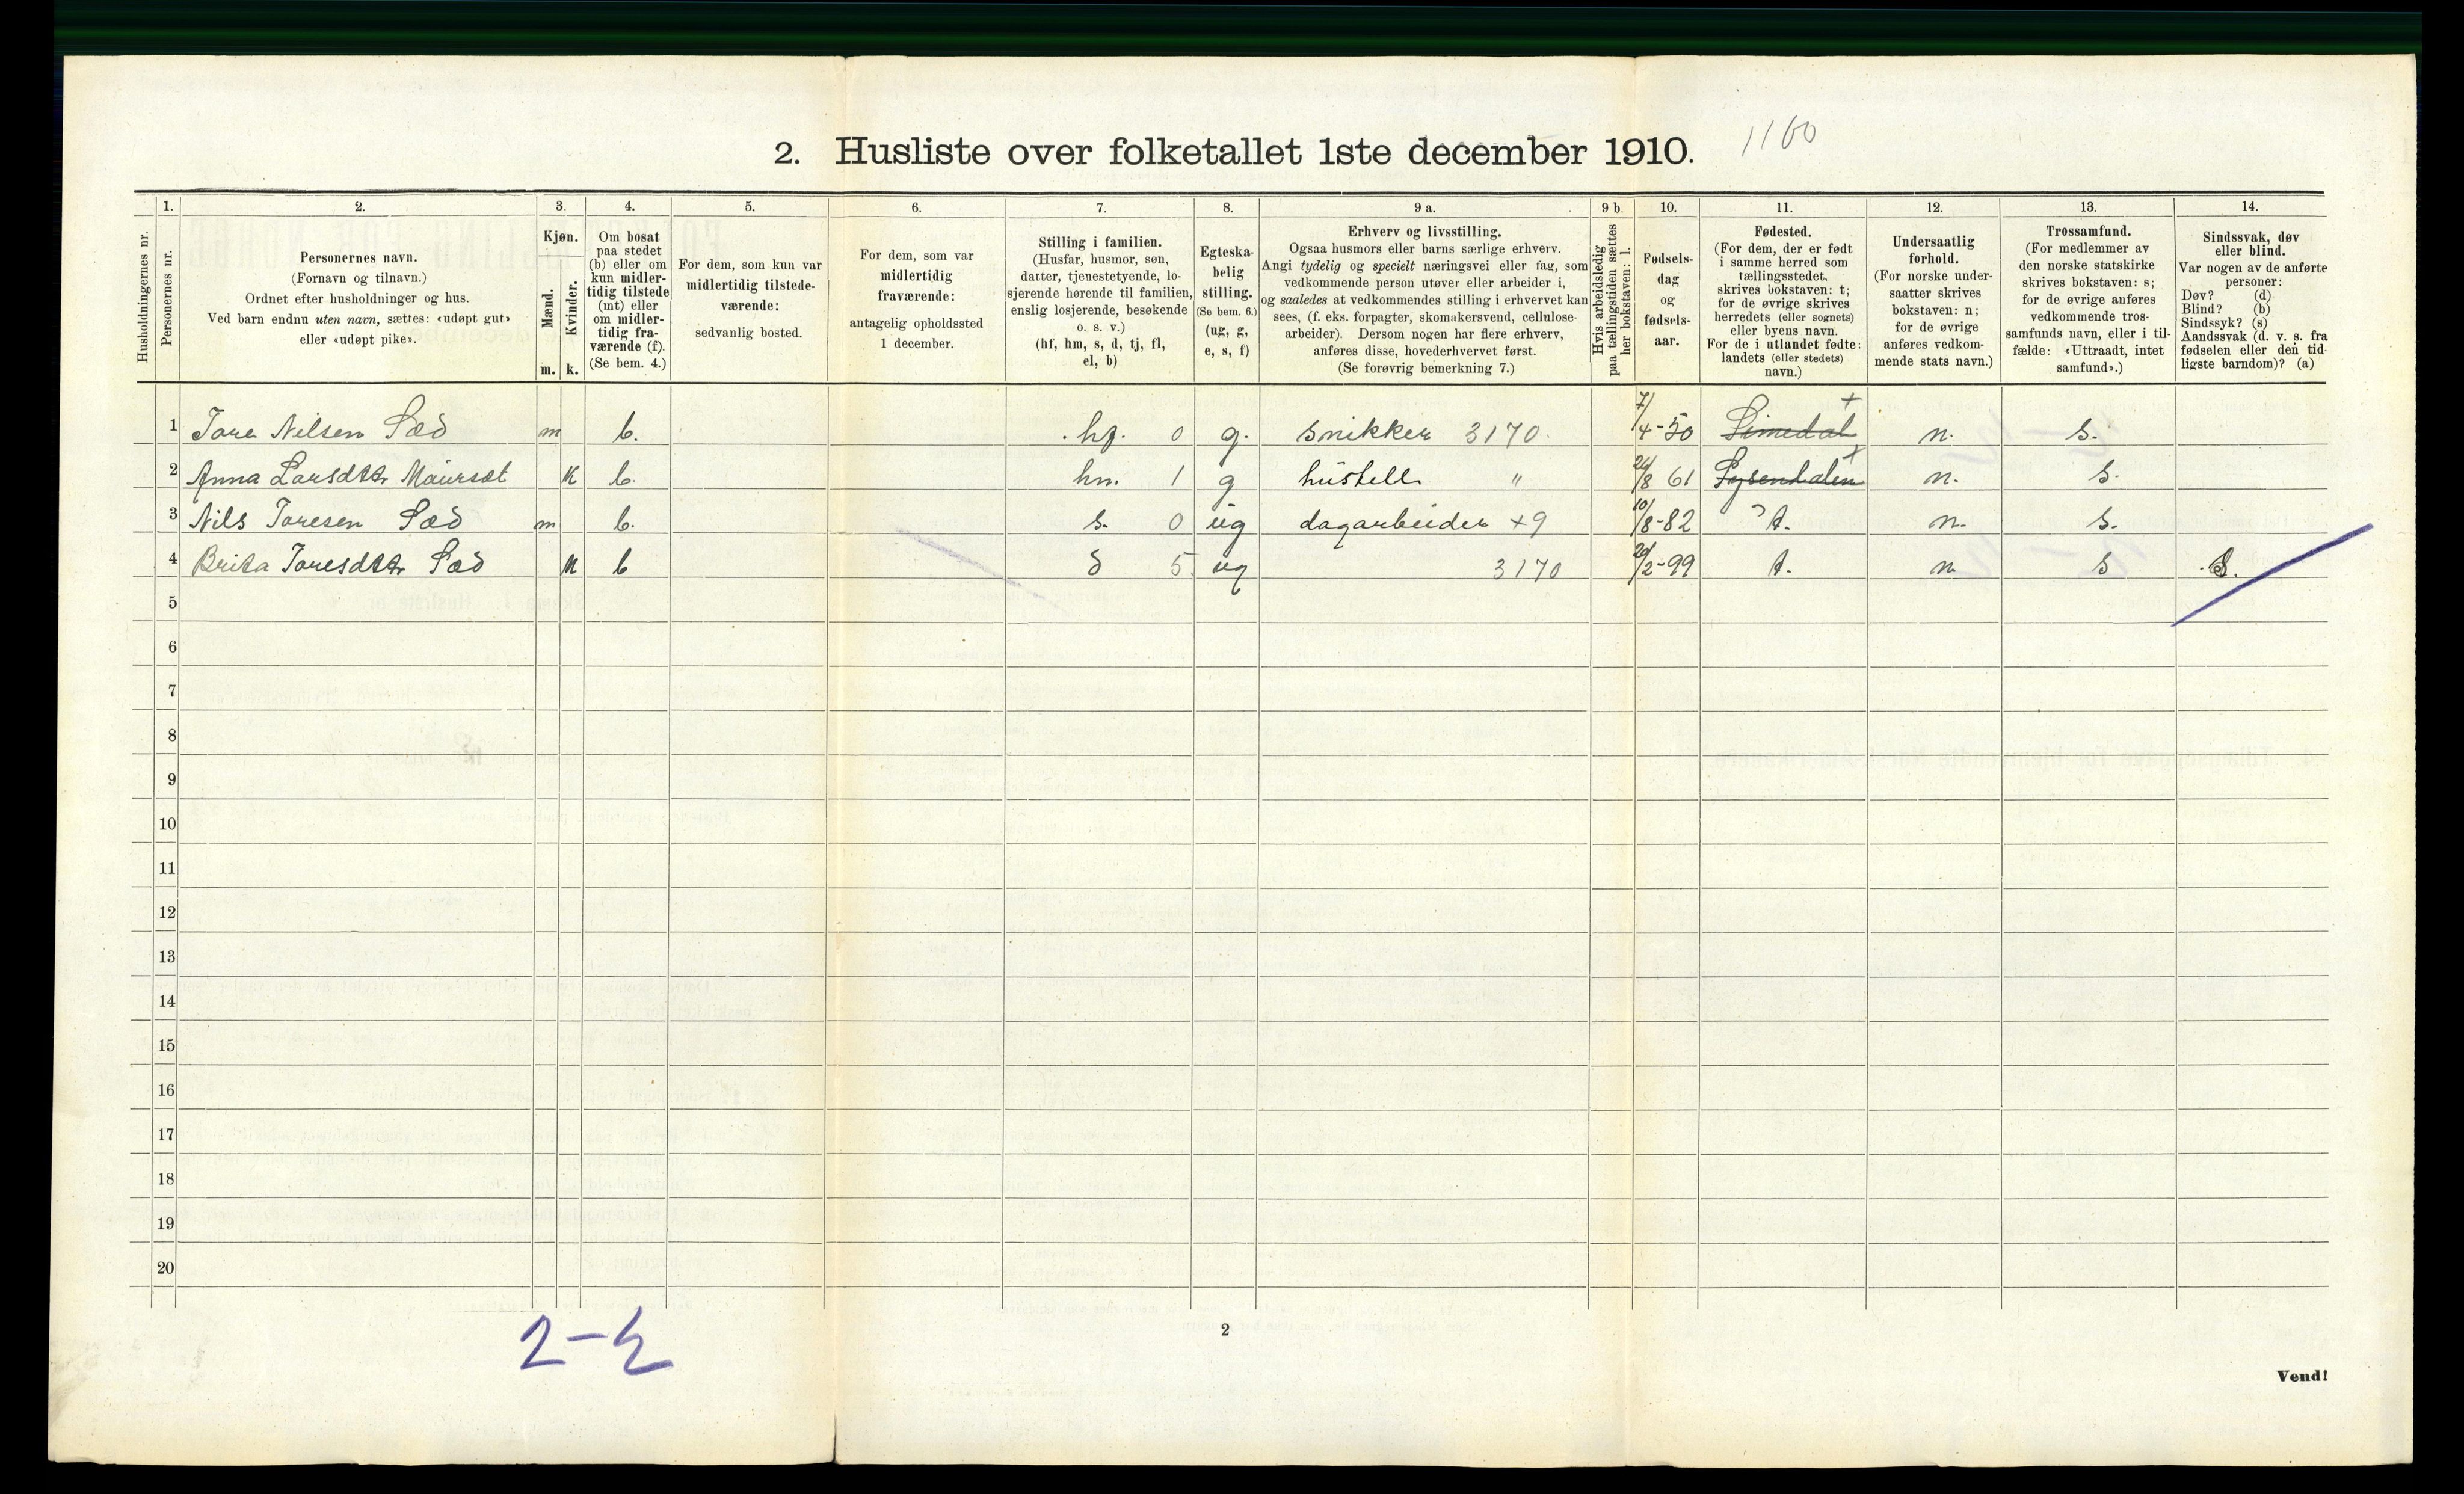 2. Husliste over folketallet 1ste december 1910. 1160
Husholdningernes nr.
1. Personernes nr.
2. Personernes navn.
(Fornavn og tilnavn.)
Ordnet efter husholdninger og hus.
Ved barn endnu uten navn, sættes: «udøpt gut»
eller «udøpt pike».
3. Kjøn.
Mænd. Kvinder.
m. k.
4. Om bosat
paa stedet
(b) eller om
kun midler-
tidig tilstede
(mt) eller
om midler-
tidig fra-
værende (f).
(Se bem. 4.)
5. For dem, som kun var
midlertidig tilstede-
værende:
sedvanlig bosted.
6. For dem, som var
midlertidig
fraværende:
antagelig opholdssted
1 december.
7. Stilling i familien.
(Husfar, husmor, søn,
datter, tjenestetyende, lo-
sjerende hørende til familien,
enslig losjerende, besøkende
o. s. v.)
(hf, hm, s, d, tj, fl,
el, b)
8. Egteska-
belig
stilling.
(Se bem. 6.)
(ug, g,
e, s, f)
9 a. Erhverv og livsstilling.
Ogsaa husmors eller barns særlige erhverv.
Angi tydelig og specielt næringsvei eller fag, som
vedkommende person utøver eller arbeider i,
og saaledes at vedkommendes stilling i erhvervet kan
sees, (f. eks. forpagter, skomakersvend, cellulose-
arbeider). Dersom nogen har flere erhverv,
anføres disse, hovederhvervet først.
(Se forøvrig bemerkning 7.)
9 b. Hvis arbeidsledig
paa tællingstiden sættes
her bokstaven: l.
10. Fødsels-
dag
og
fødsels-
aar.
11. Fødested.
(For dem, der er født
i samme herred som
tællingsstedet,
skrives bokstaven: t;
for de øvrige skrives
herredets (eller sognets)
eller byens navn.
For de i utlandet fødte:
landets (eller stedets)
navn.)
12. Undersaatlig
forhold.
(For norske under-
saatter skrives
bokstaven: n;
for de øvrige
anføres vedkom-
mende stats navn.)
13. Trossamfund.
(For medlemmer av
den norske statskirke
skrives bokstaven: s;
for de øvrige anføres
vedkommende tros-
samfunds navn, eller i til-
fælde: «Uttraadt, intet
samfund».)
14. Sindssvak, døv
eller blind.
Var nogen av de anførte
personer:
Døv? (d)
Blind? (b)
Sindssyk? (s)
Aandssvak (d. v. s. fra
fødselen eller den tid-
ligste barndom)? (a)
1 Tore Nilsen Sæd m b. hf. 0 g. snikker 3170 7/4-50 Simedal + n. s.
2 Anna Larsdttr Maursæt k b. hm. 1 g hüstell " 26/8 61 + n. s.
3 Nils Toresen Sæd m b. s. 0 üg dagarbeider +9 10/8-82 t. n. s.
4 Brita Toresdttr Sæd k b d 5 üg 3170 20/2-99 t. n s
5
6
7
8
9
10
11
12
13
14
15
16
17
18
19
20
2
Vend!